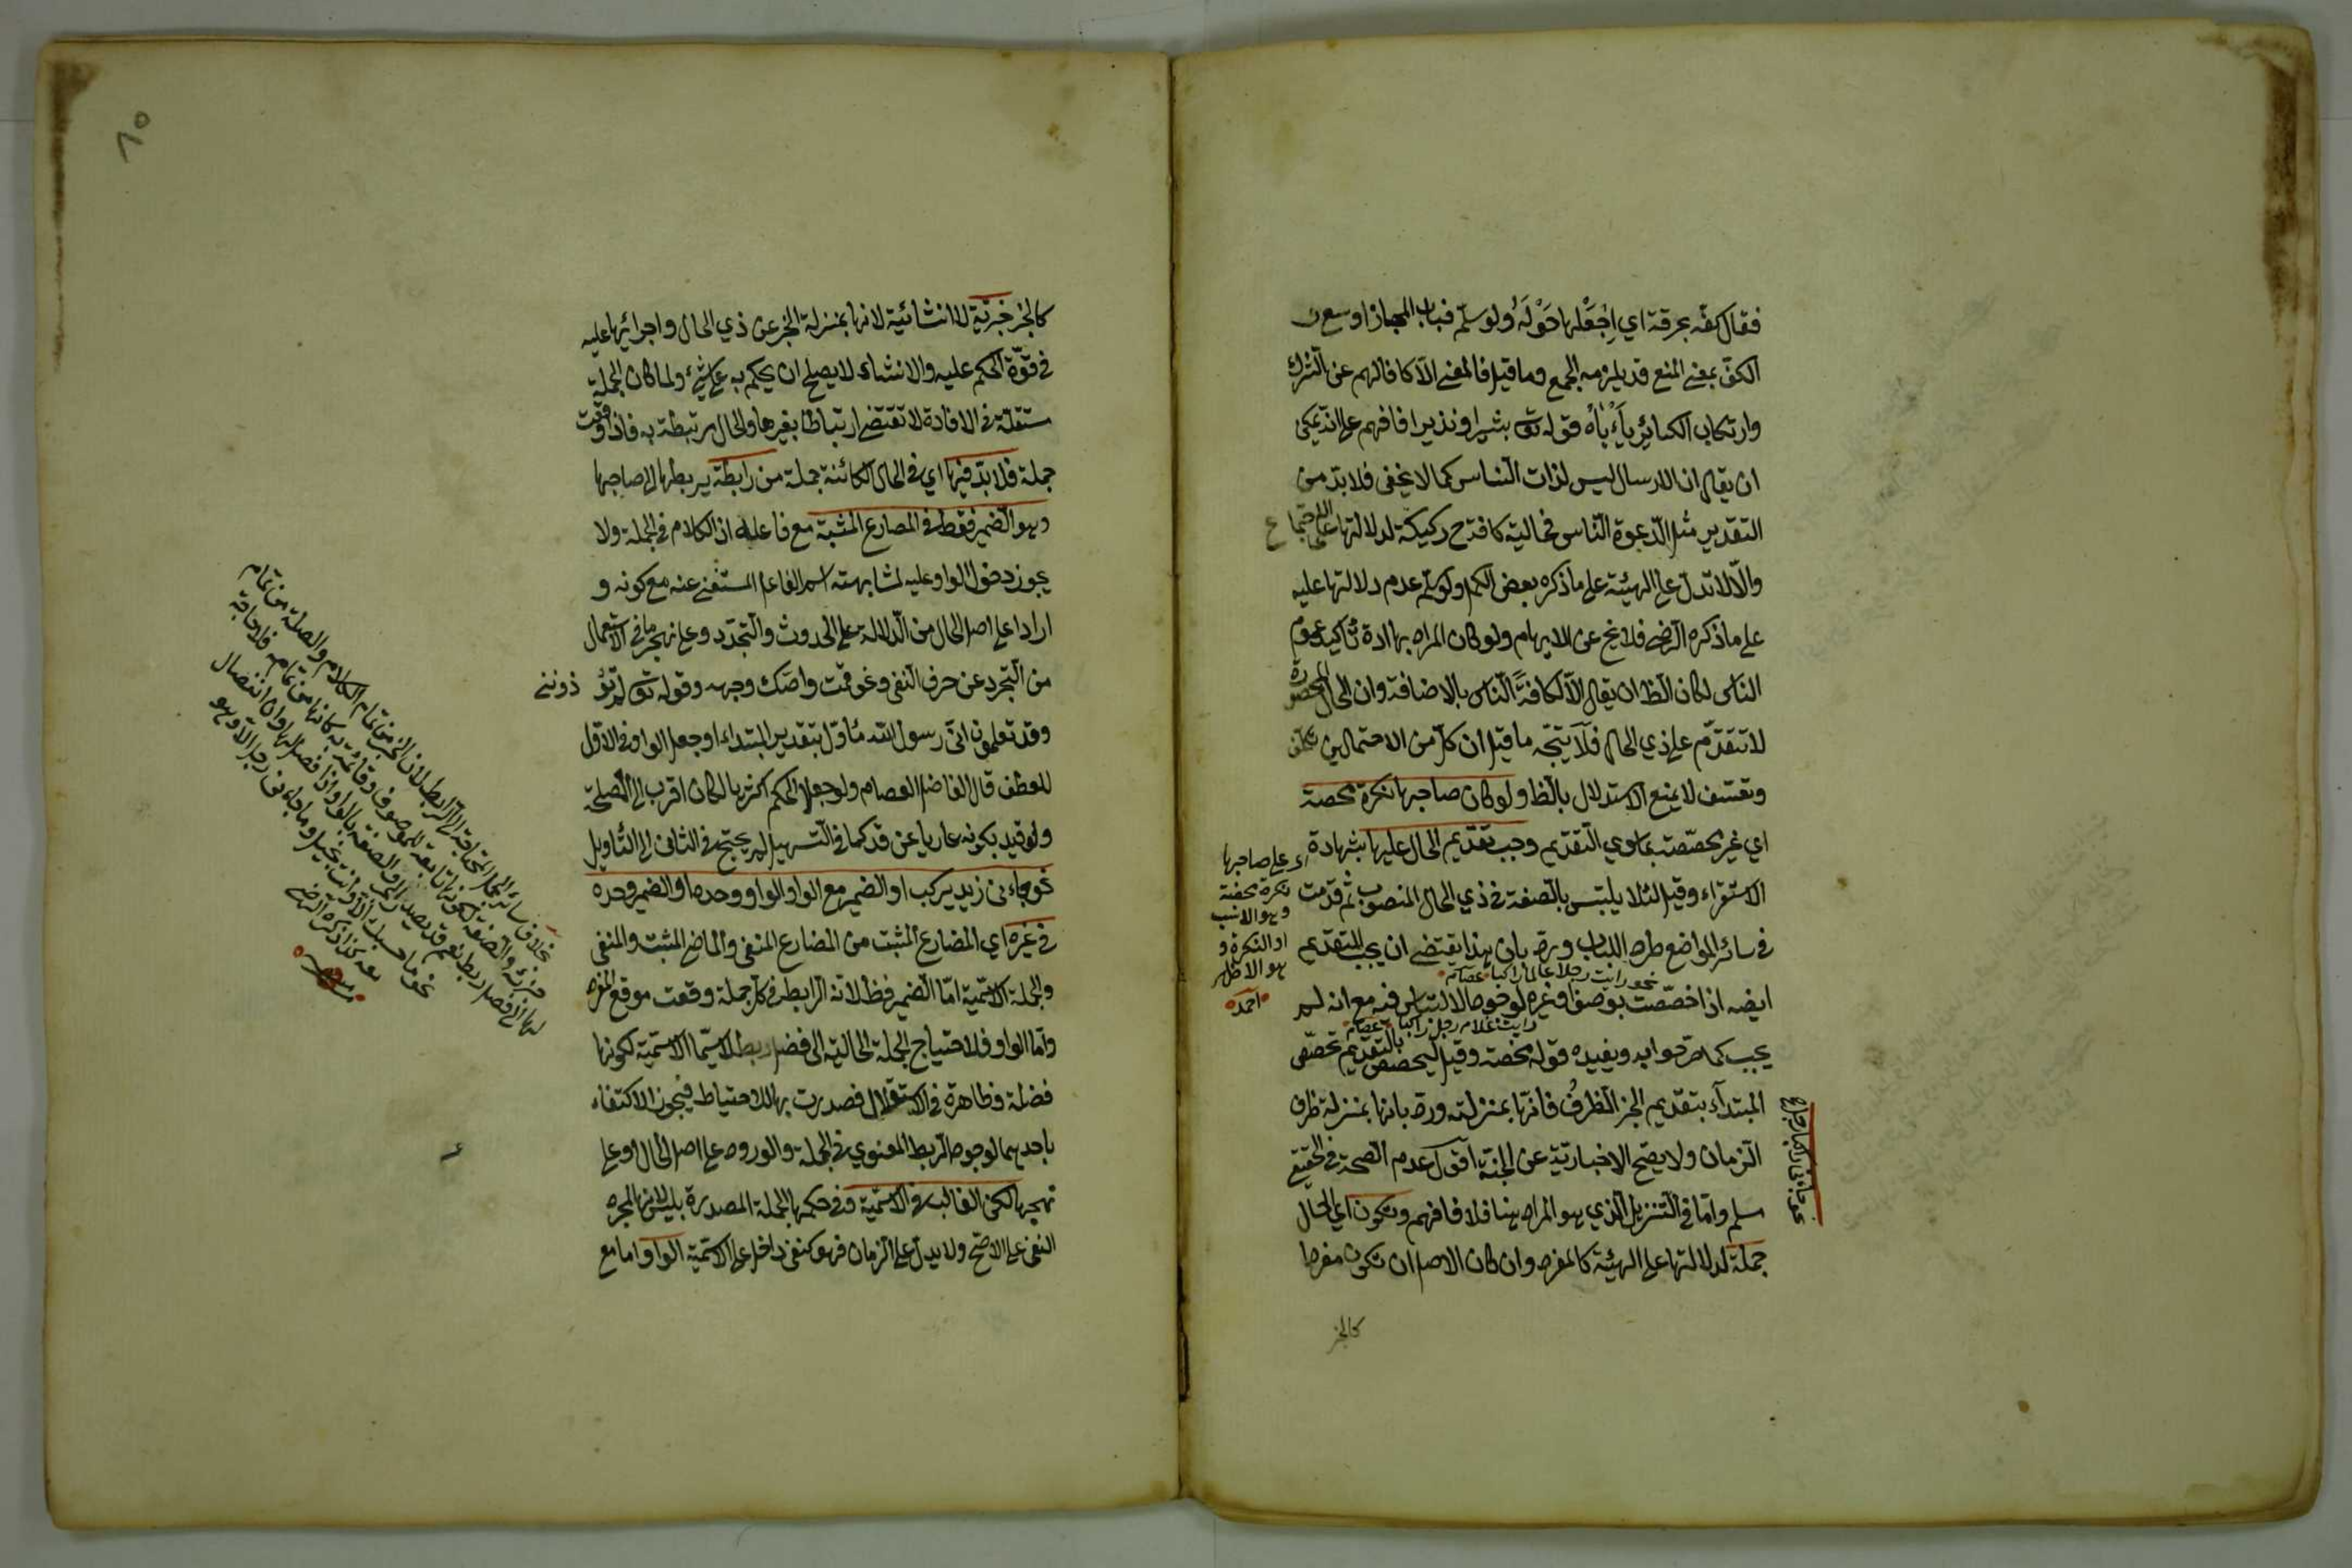 فقال كفّه بخرقة اي اِجْعَلْها حَوْلَهُ ولو سلّم فباب المجاز اوسع
الكفّ بمعنى المنع قد يلزمه الجمع وما قيل فالمعنى الا كافا لهم عن الشرك
وارتكاب الكبائر يَأْباهُ قوله تع بشيرا ونذيرا فافهم على انه يمكن
ان يقال ان الارسال ليس لذات الناس كما لا يخفى فلا بد من
التقدير مثل الدعوة الناس فحالية كافة ح ركيكة لدلالتها على الاجتماع
والّا لا تدل على الهيئة على ما ذكره بعض الكمل ولو سلم عدم دلالتها عليه
على ما ذكره الرضي فلا يخ عن الابهام ولو كان المراد بها ارادة تأكيد عموم
الناس لكان الظ ان يقال الّا لكافةً الناس بالاضافة وان الحال المحصورة
لا تتقدّم على ذي الحال فلا يتجّه ما قيل ان كلّا من الاحتمالين تكلف
وتعسّف لا يمنع الاستدلال بالظ ولو كان صاحبها نكرة محضة
اي غير مخصّصة بما سوى التقديم وجب تقديم الحال عليها بشهادة
الاستقراء وقيل لئلا يلتبس بالصفة في ذي الحال المنصوب ثم قدّمت
في سائر المواضع طردا للباب وردّ بان هذا يقتضي ان يجب التقديم
نحو رايت رجلا عالما راكبا عصام
ايضه اذا خصّصت بوصف او غيره لوجود الالتباس فيه مع انه لم
رايت غلام رجل راكبا عصام
يجب كما صرّحوا به ويفيده قوله محضة وقيل ليتخصّص بالتقديم تخصّص
المبتدأ بتقديم الخبر الظرف فانّها بمنزلته وردّ بانها بمنزلة ظرف
الزمان ولا يصح الاخبار به عن الجثة اقول عدم الصحة في الحقيقي
مسلم وامّا في التنزيل الذي هو المراد هنا فلا فافهم وتكون اي الحال
جملة لدلالتها على الهيئة كالمفرد وان كان الاصل ان تكون مفردا
كالخبر
اي على صاحبها
نكرة محضة
وهو الانسب
او النكرة و
هو الاظهر
احمد
كالخبر خبريّة لا انشائية لانها بمنزلة الخبر عن ذي الحال واجرائها عليه
في قوّة الحكم عليه والانشاء لا يصلح ان يحكم به على شيء ولما كان الجملة
مستقلة في الافادة لا تقتضي ارتباطا بغيرها والحال مرتبطة به فاذا وقعت
جملة فلا بدّ فيها اي في الحال الكائنة جملة من رابطة يربطها الى صاحبها
وهو الضمير فقط في المضارع المثبت مع فاعله اذ الكلام في الجملة ولا
يجوز دخول الواو عليه لمشابهته اسم الفاعل المستغنى عنه مع كونه و
اردا على اصل الحال من الدلالة على الحدوث والتجدّد وعلى نهجها في الاستعمال
من التجرد عن حرف النفي ونحو قمت واصكّ وجهه وقوله تع لم تؤذونني
وقد تعلمون انّي رسول الله مأوّل بتقدير المبتداء او جعل الواو في الاول
للعطف قال الفاضل العصام ولو جعل الحكم اكثريا لكان اقرب الى المصلحة
ولو قيد بكونه عاريا عن قد كما في التسهيل لم يحتج في الثاني الى التأويل
نحو جاءني زيد يركب او الضمير مع الواو او الواو وحده او الضمير وحده
في غيره اي المضارع المثبت من المضارع المنفي والماضي المثبت والمنفي
والجملة الاسميّة امّا الضمير فظ لانه الرابط في كلّ جملة وقعت موقع المفرد
وامّا الواو فلاحتياج الجملة الحالية الى فضل ربط لا سيّما الاسميّة لكونها
فضلة وظاهرة في الاستقلال فصدرت بها للاحتياط فيجوز الاكتفاء
باحديهما لوجود الربط المعنوي في الجملة والورود على اصل الحال او على
نهجها لكن الغالب في الاسميّة وفي حكمها الجملة المصدرة بليس لانها لمجرد
النفي على الاصح ولا يدل على الزمان فهو كنفي داخل على الاسمية الواو اما مع